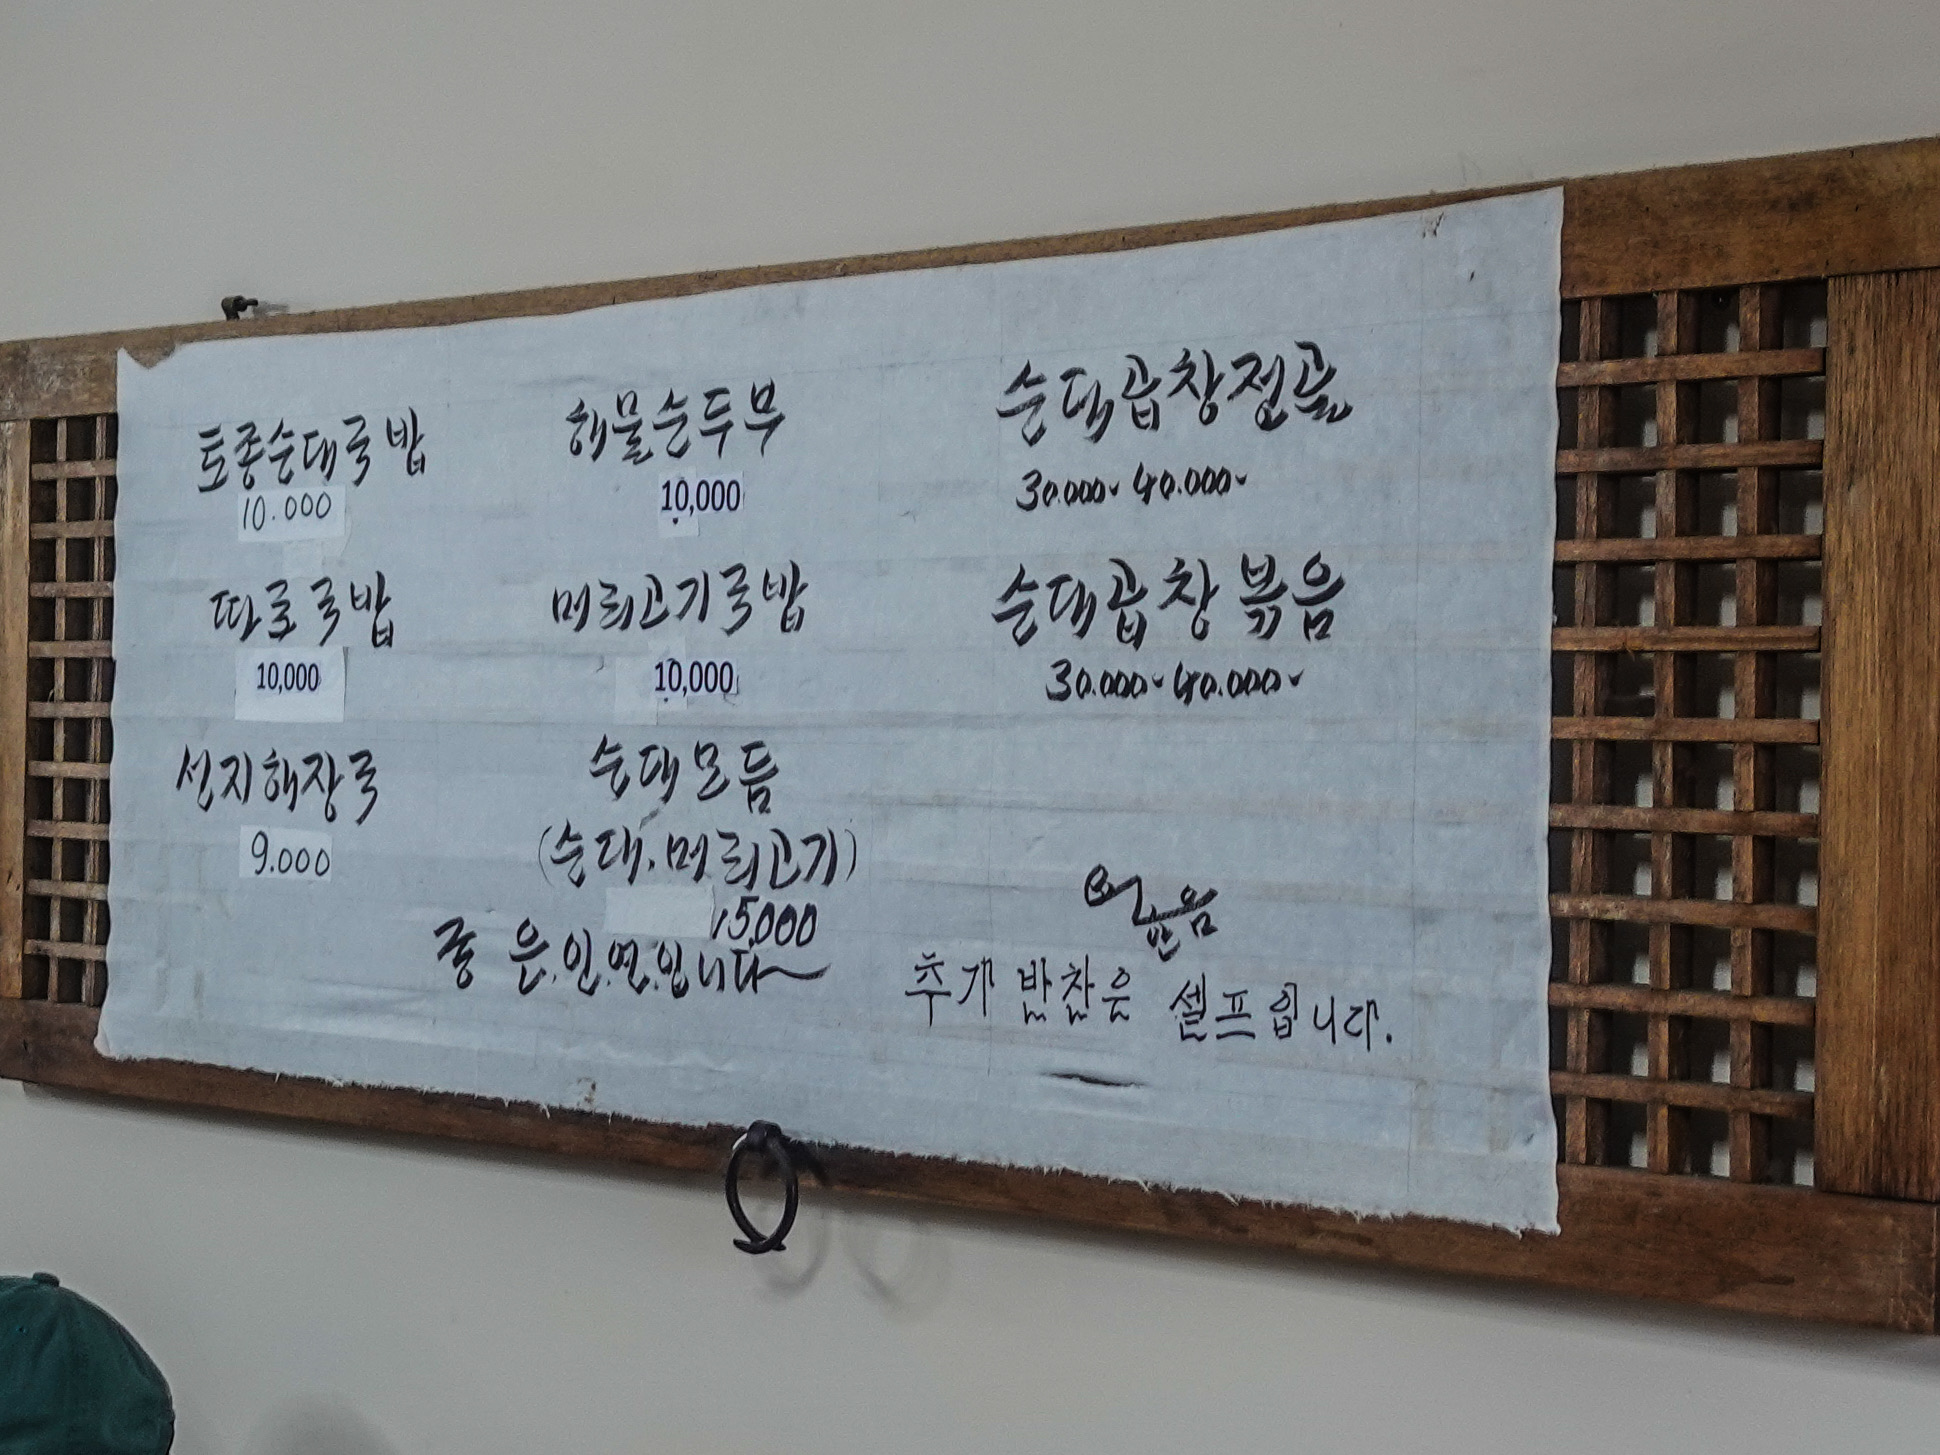 토종순대국밥
10.000
따로국밥
10,000
선지해장국
9.000
해물순두부
10,000
머리고기국밥
10,000
순대모듬
(순대.머리고기)
15,000
좋은.인.연.입니다~
순대곱창전골
30.000- 40.000-
순대곱창볶음
30.000- 40.000-
추가 반찬은 셀프입니다.